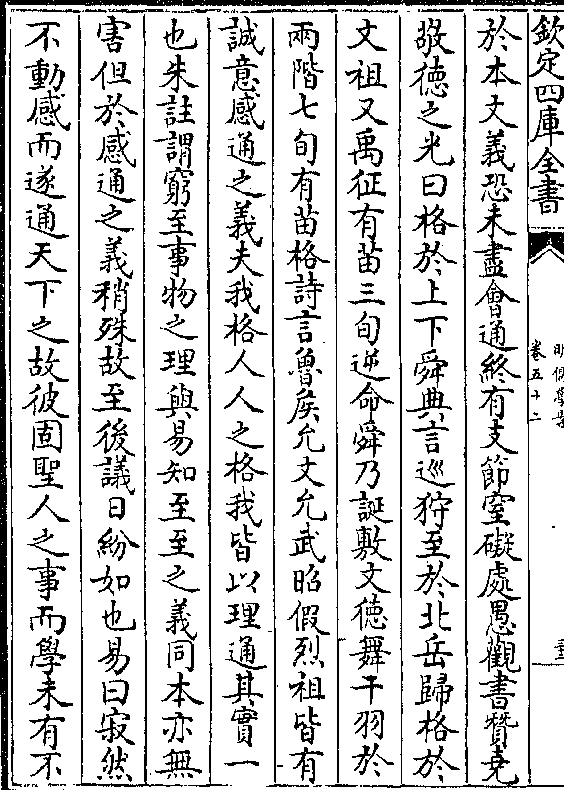 欽定四庫全書
明儒學案
卷五十二
於本文義恐未盡會通終有支節窒礙處愚觀書贊堯
敬德之光曰格於上下舜典言巡狩至於北岳歸格於
文祖又禹征有苗三旬逆命舜乃誕敷文德舞干羽於
兩階七旬有苗格詩言魯矦允文允武昭假烈祖皆有
誠意感通之義夫我格人人之格我皆以理通其實一
也朱註謂窮至事物之理與易知至至之義同本亦無
害但於感通之義稍殊故至後議日紛如也易曰寂然
不動感而遂通天下之故彼固聖人之事而學未有不